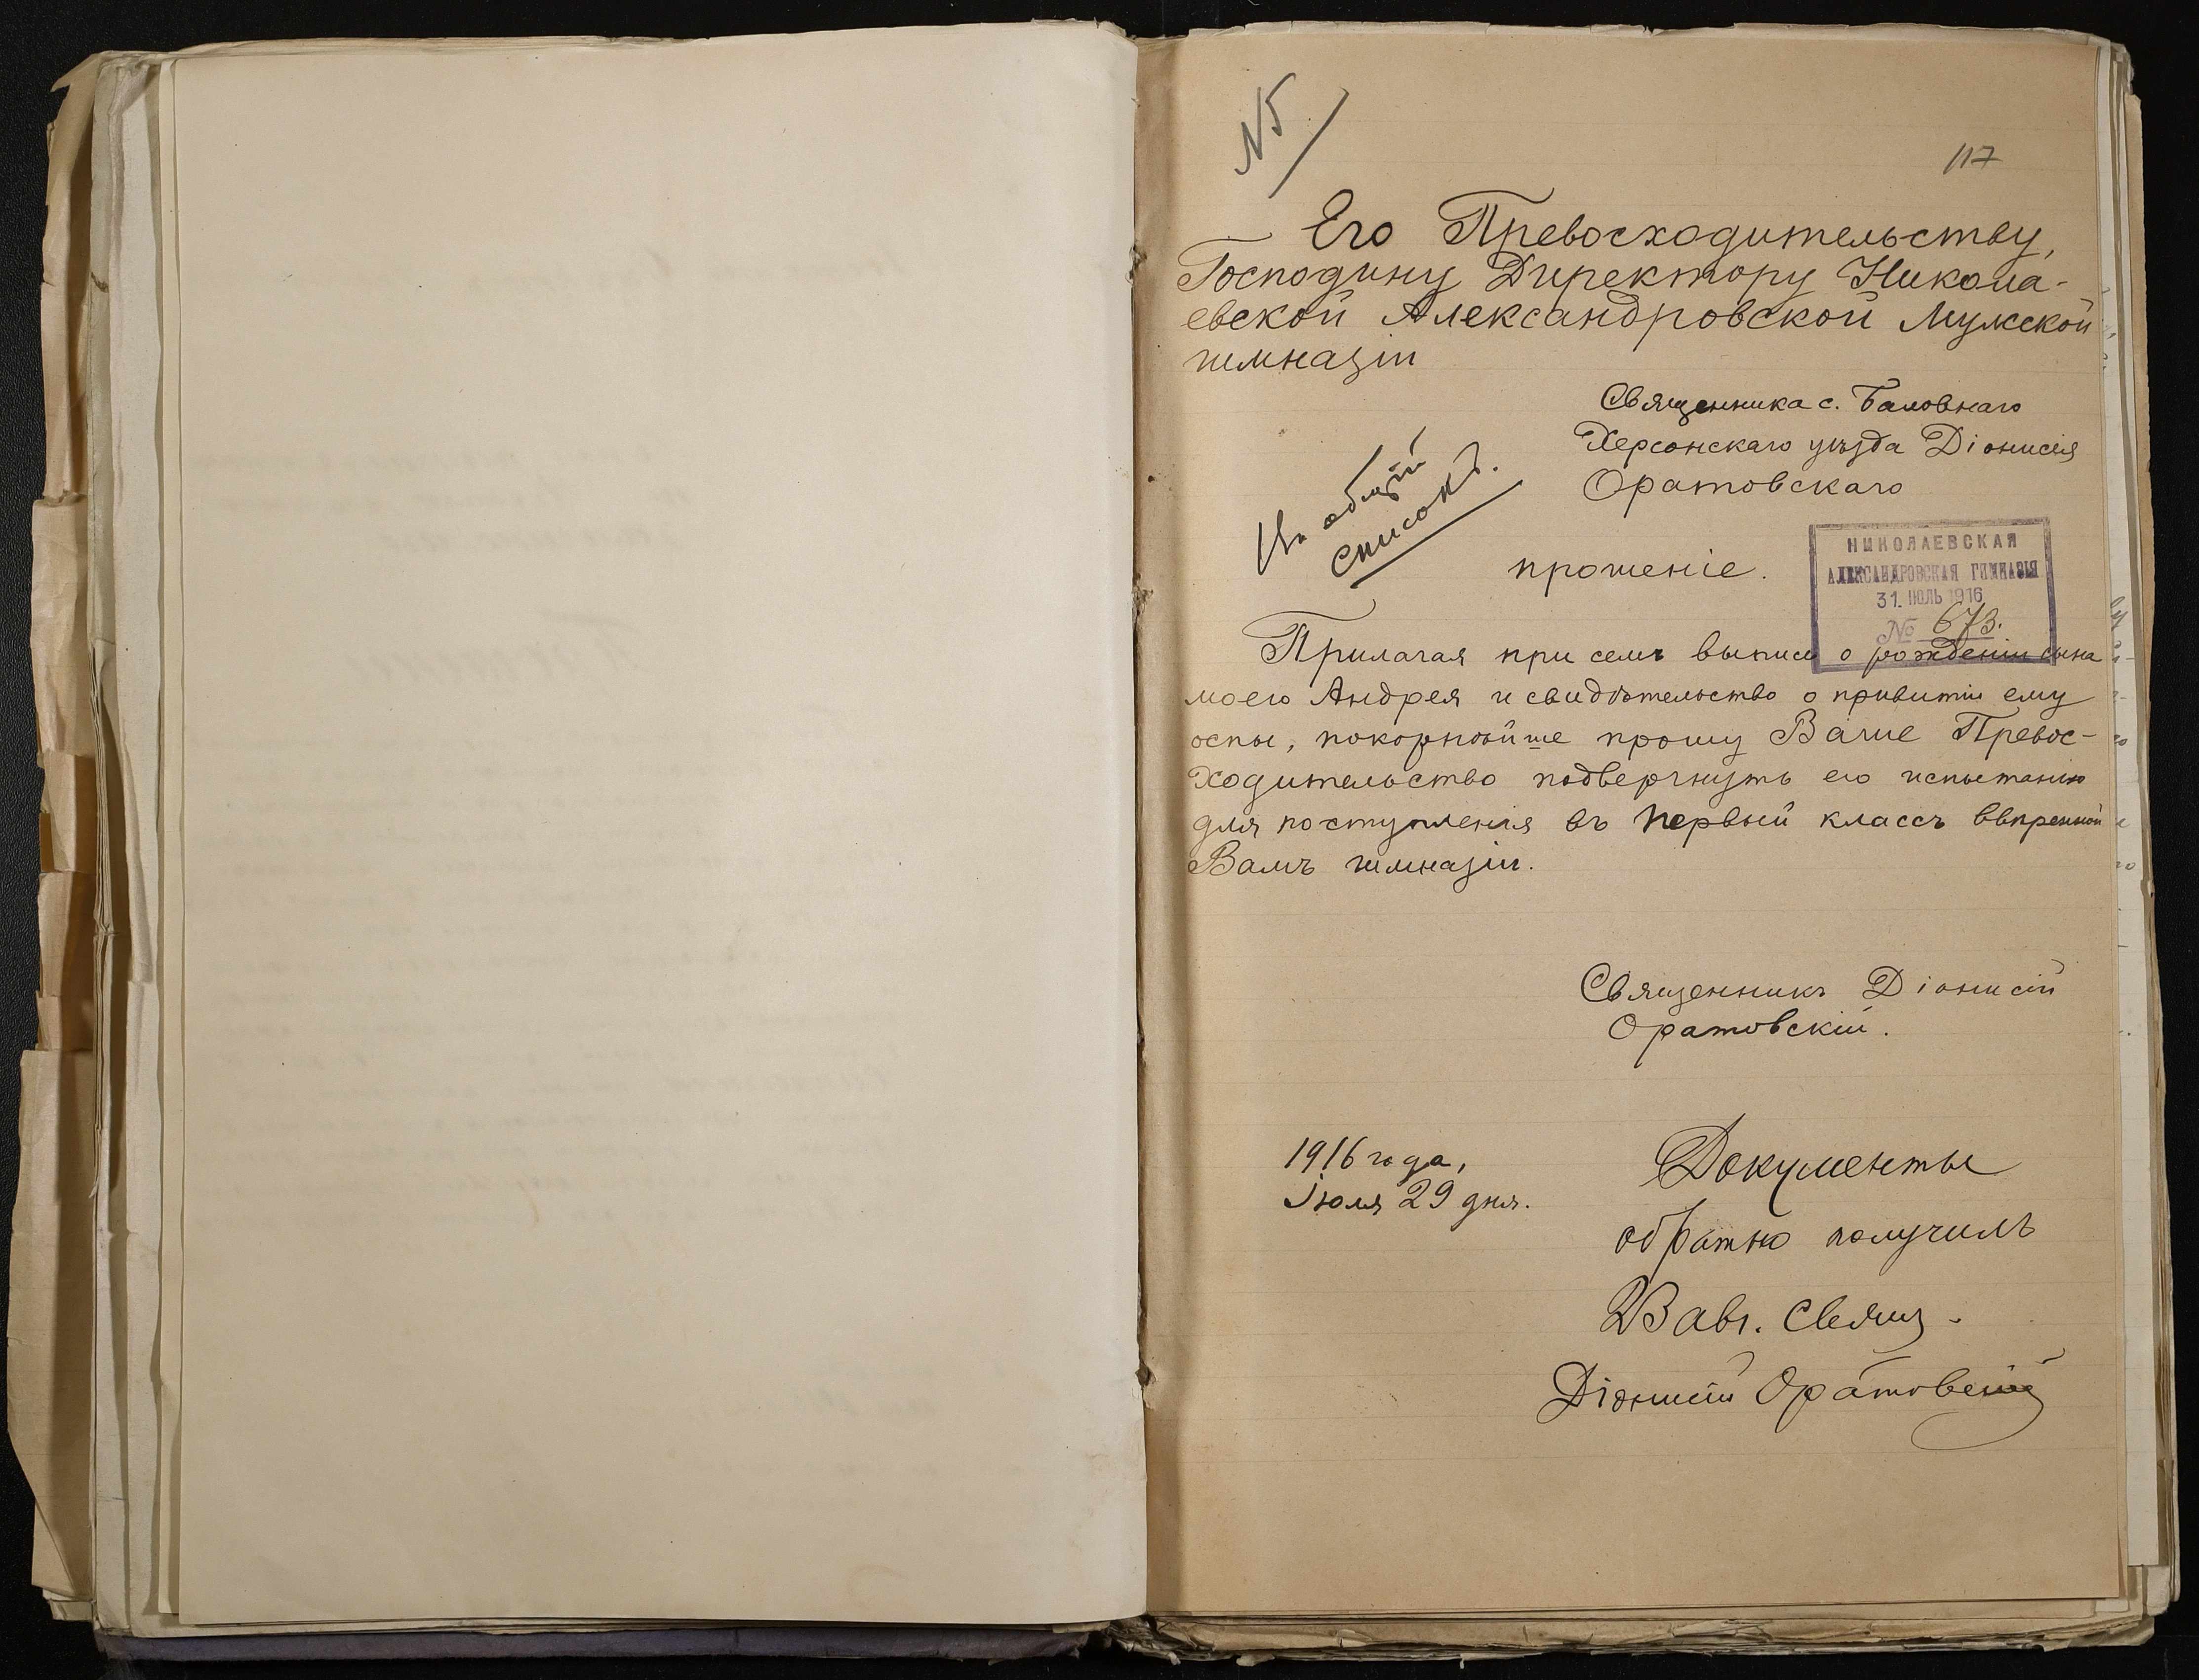 N5
117
Его Превосходительству,
Господину Директору Никола-
евской Александровской Мужской
гимназіи
Священника с. Баловнаго
Херсонскаго уѣзда Діонисія
Оратовскаго
На общій
списокъ.
прошеніе.
НИКОЛАЕВСКАЯ
АЛЕКСАНДРОВСКАЯ ГИМНАЗІЯ
31. ІЮЛЬ 1916
№ 673.
Прилагая при семъ выпись о рожденіи сына
моего Андрея и свидѣтельство о привитіи ему
оспы, покорнѣйше прошу Ваше Превос-
ходительство подвергнуть его испытанію
для поступленія въ первый классъ ввѣренной
Вамъ гимназіи.
Священникъ Діонисій
Оратовскій.
1916 года,
Іюля 29 дня.
Документы
обратно получилъ
Свящ.
Діонисій Оратовскій